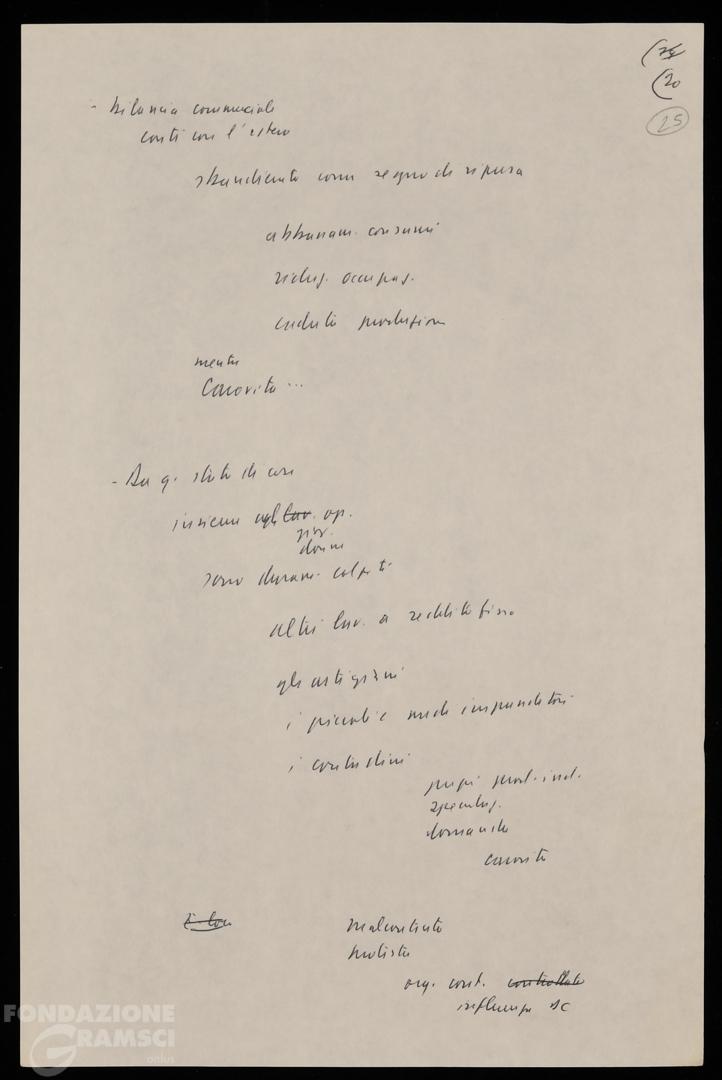 (20
25
- bilancia commerciale
conti con l'estero
sbandierata come segno di ripresa
abbassam. consumi
riduz. occupaz.
caduta produzione
mentre
Carovita ...
- Da q. stato di cose
insieme agli lav. op.
giov.
donne
sono duram. colpiti
altri lav. a reddito fisso
gli artigiani
i piccoli e medi imprenditori
i contadini
prezzi prod. ind.
speculaz.
domanda
carovita
malcontento
protesta
org. cont. controllate
influenza DC
FONDAZIONE
GRAMSCI
onlus